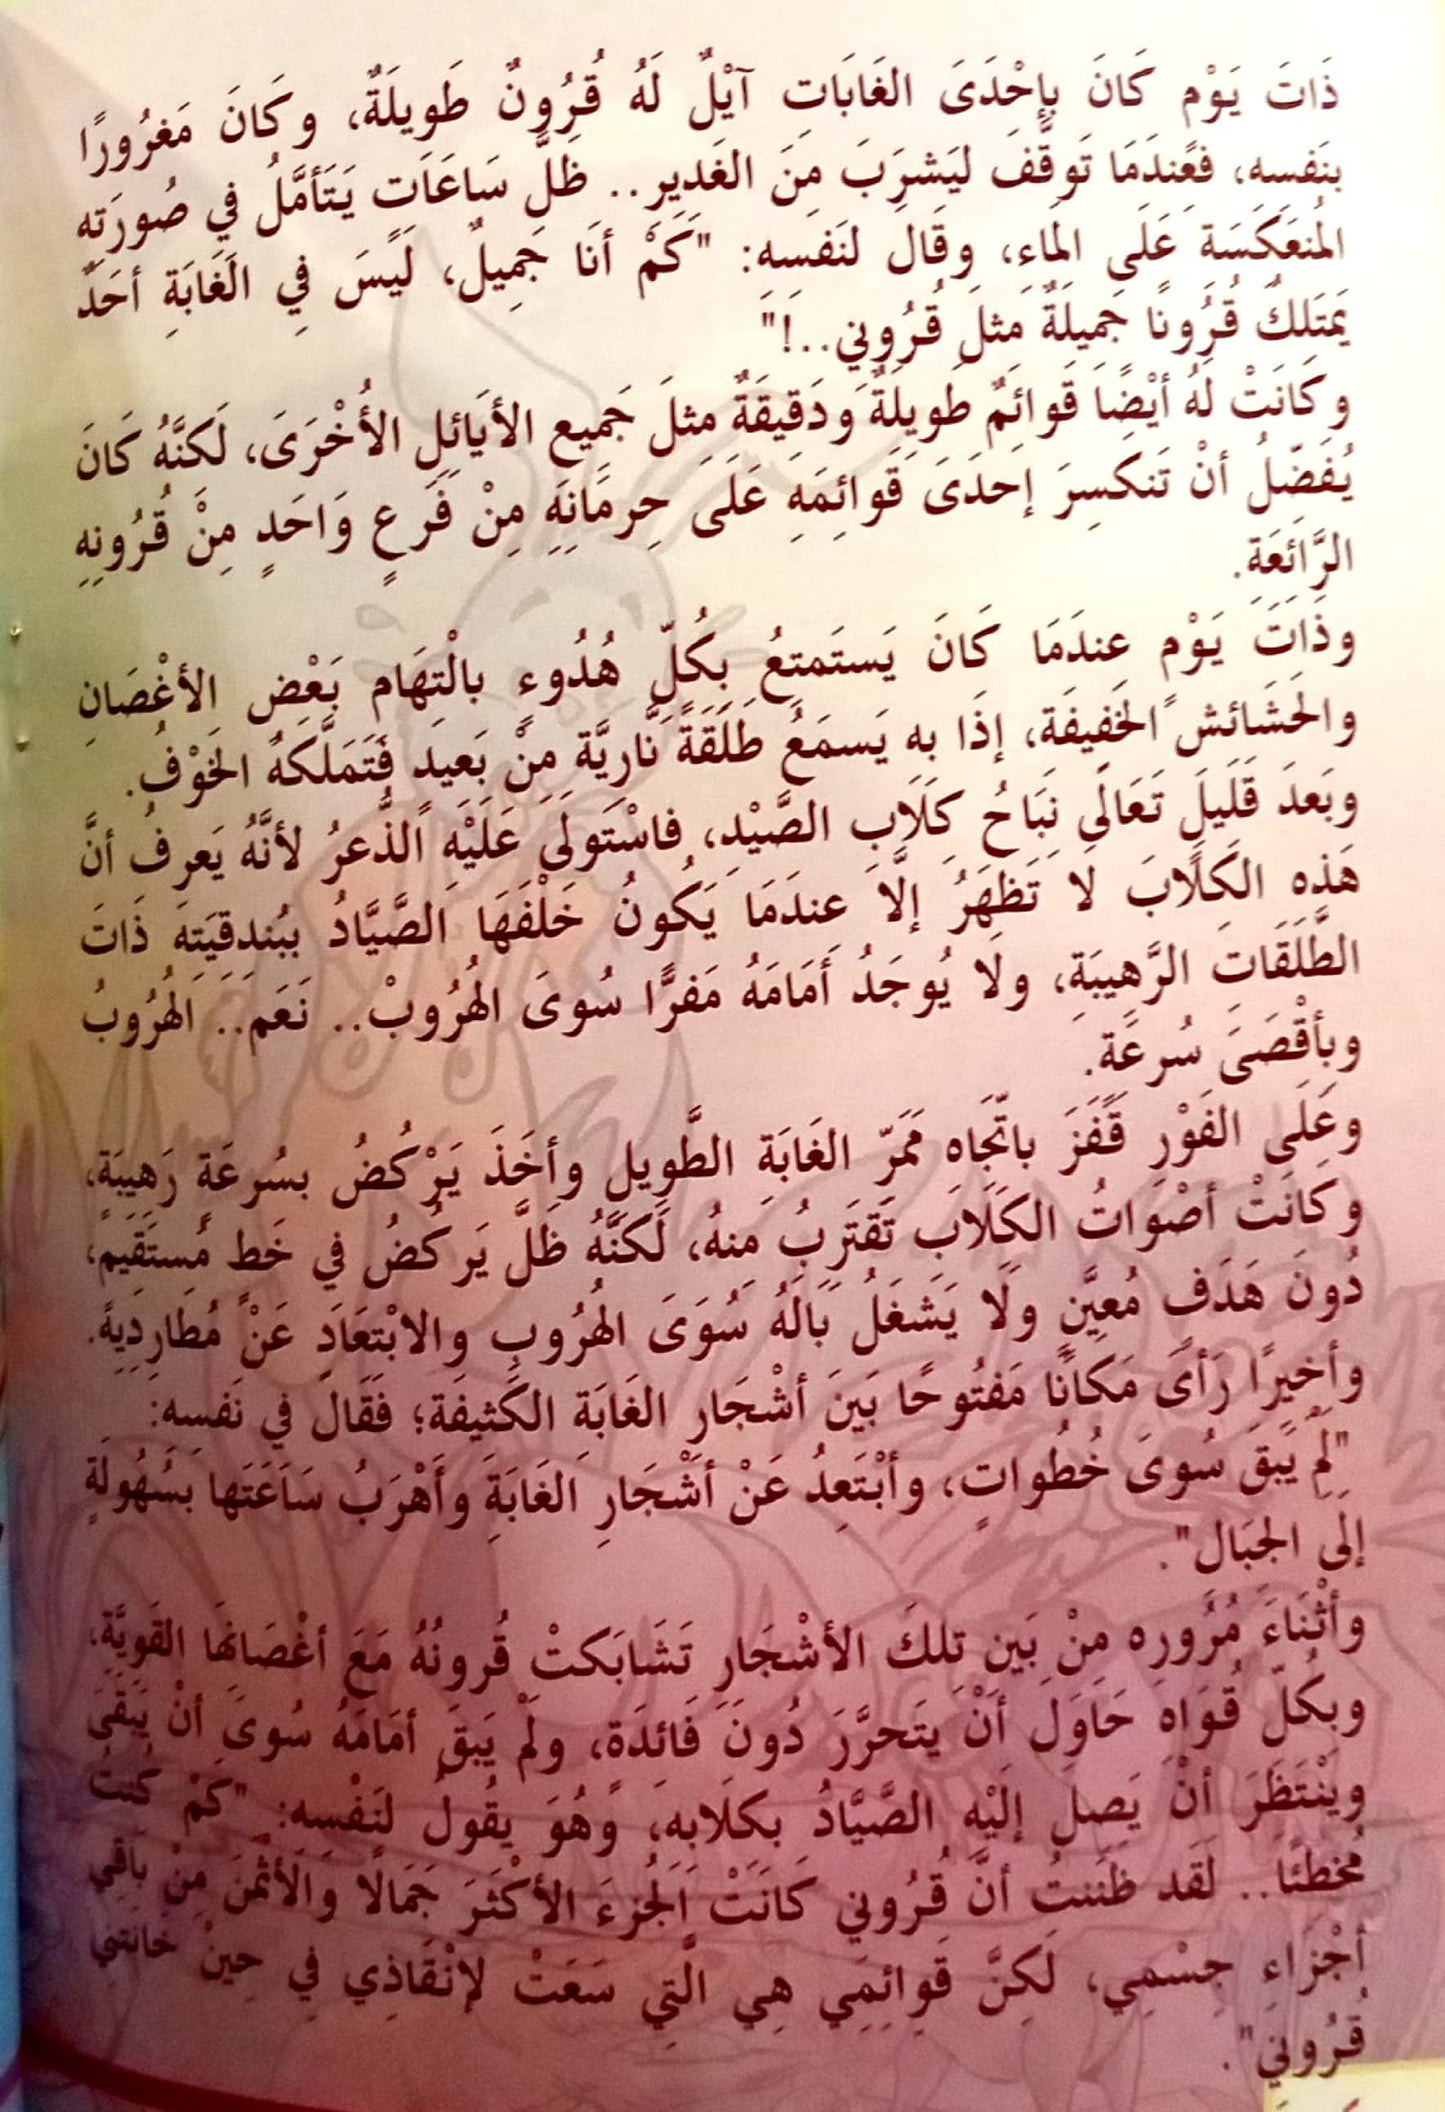 ذَاتَ يَوْمٍ كَانَ بِإِحْدَىَ الغَابَاتِ آيْلٌ لَهُ قُرُونٌ طَوِيلَةٌ، وكَانَ مَغرُورًا
بنَفسه، فعِندَمَا تَوقَّفَ ليَشرَبَ مِنَ الغَديرِ.. ظَلَّ سَاعَات يَتَأمَّلُ في صُورَته
المُنعَكَسَة عَلَى الَماء، وقَالَ لنَفسِهِ: "كَمْ أنَا جَمِيلٌ، لَيسَ فِي الغَابَةِ أحَدٌ
يَمتَلكُ قُرُونًا جَميلَةٌ مثلَ قُرُوني..!"
وكَانَتْ لهُ أيْضًا قَوائمٌ طَويلةٌ وَدَقِيقَةٌ مِثلَ جَميع الأيَائلِ الأُخْرَىَ، لَكنَّهُ كَانَ
يُفَضّلُ أنْ تَنكَسِرَ إحدَىَ قَوائمَهِ عَلَىَ حِرمَانِهِ مِنْ فَرعٍ وَاحَدٍ مِنْ قُرُونِهِ
الرَّائعَةِ.
وذَاتَ يَوْمٍ عندَمَا كَانَ يَستَمتعُ بكُلّ هُدُوءٍ بالْتِهَام بَعْضِ الأغْصَانِ
والحَشَائش الخَفِيفَة، إذَا به يَسمَعُ طَلَقَةً نَّاريَّة مِنْ بَعيد فَتَمَلَّكَهُ الخَوْفُ.
وبَعدَ قَليلَ تَعَالَى نبَاحُ كَلَاب الصَّيْدِ، فاسْتَولَىَ عَلَيْه الذُّعرُ لأنَّهُ يَعرِفُ أنَّ
هَذه الكَلَابَ لَا تَظهَرُ إلَّا عندَمَا يَكُونُ خَلْفَهَا الصَّيَّادُ ببُندقيَته ذَاتَ
الطَّلَقَات الرَّهِيبَةِ، ولَا يُوجَدُ أَمَامَهُ مَفرًّا سُوىَ الهُرُوبْ.. نَعَم.. الهُرُوبُ
وبأقْصَىَ سُرعَة.
وعَلَى الفَوْرِ قَفَزَ باتّجَاه مَمَرّ الغَابَةِ الطَّويل وأخَذَ يَرْكُضُ بسُرعَةٍ رَهِيبَةٍ،
وكَانَتْ أصْوَاتُ الكَلَاب تَقتَربُ منهُ، لَكنَّهُ ظَلَّ يَركُضُ في خَط مُستَقيم،
دُونَ هَدَف مُعيَّنٍ ولَا يَشغَلُ بَالَهُ سُوَىَ الهُرُوبِ والابْتعَادَ عَنْ مُطَارديةِ.
وأخيرًا رَأىَ مَكَانًا مَفتُوحًا بَينَ أشْجَارِ الغَابَةِ الكَثيفَة؛ فَقَالَ في نَفسه:
"لمْ يَبقَ سُوىَ خُطُواتٍ، وأبْتَعِدُ عَنْ أشْجَارِ الغَابَةِ وأهْرَبُ سَاعَتَها بسُهُولَةٍ
إلَى الجبَال".
وأثْنَاءَ مُرُورِه مِنْ بَينِ تِلكَ الأشْجَارِ تَشَابَكتْ قُرونُهُ مَعَ أغْصَانهَا القَويَّةِ،
وبكُلّ قُوَاه حَاوَلَ أنْ يتَحرَّرَ دُونَ فَائدَة، ولَمْ يَبقَ أمَامَهُ سُوىَ أنْ يَبْقَىَ
ويَنْتَظَرَ أنْ يَصلَ إلَيْه الصَّيَّادُ بكلَابه، وهُوَ يقُولُ لنَفْسه: "كَمْ كُنتُ
مُخطئًا.. لَقَد ظَننتُ أنَّ قُرُوني كَانَتْ الجُزءَ الأكْثَرَ جَمَالًا وَالأثْمَنَ مِنْ بَاقي
أجْزَاءِ جِسْمِي، لَكِنَّ قَوائِمِي هِي الَّتِي سَعَتْ لإنْقَاذِي فِي حِينْ خَانَتني
قُرُونيَ".